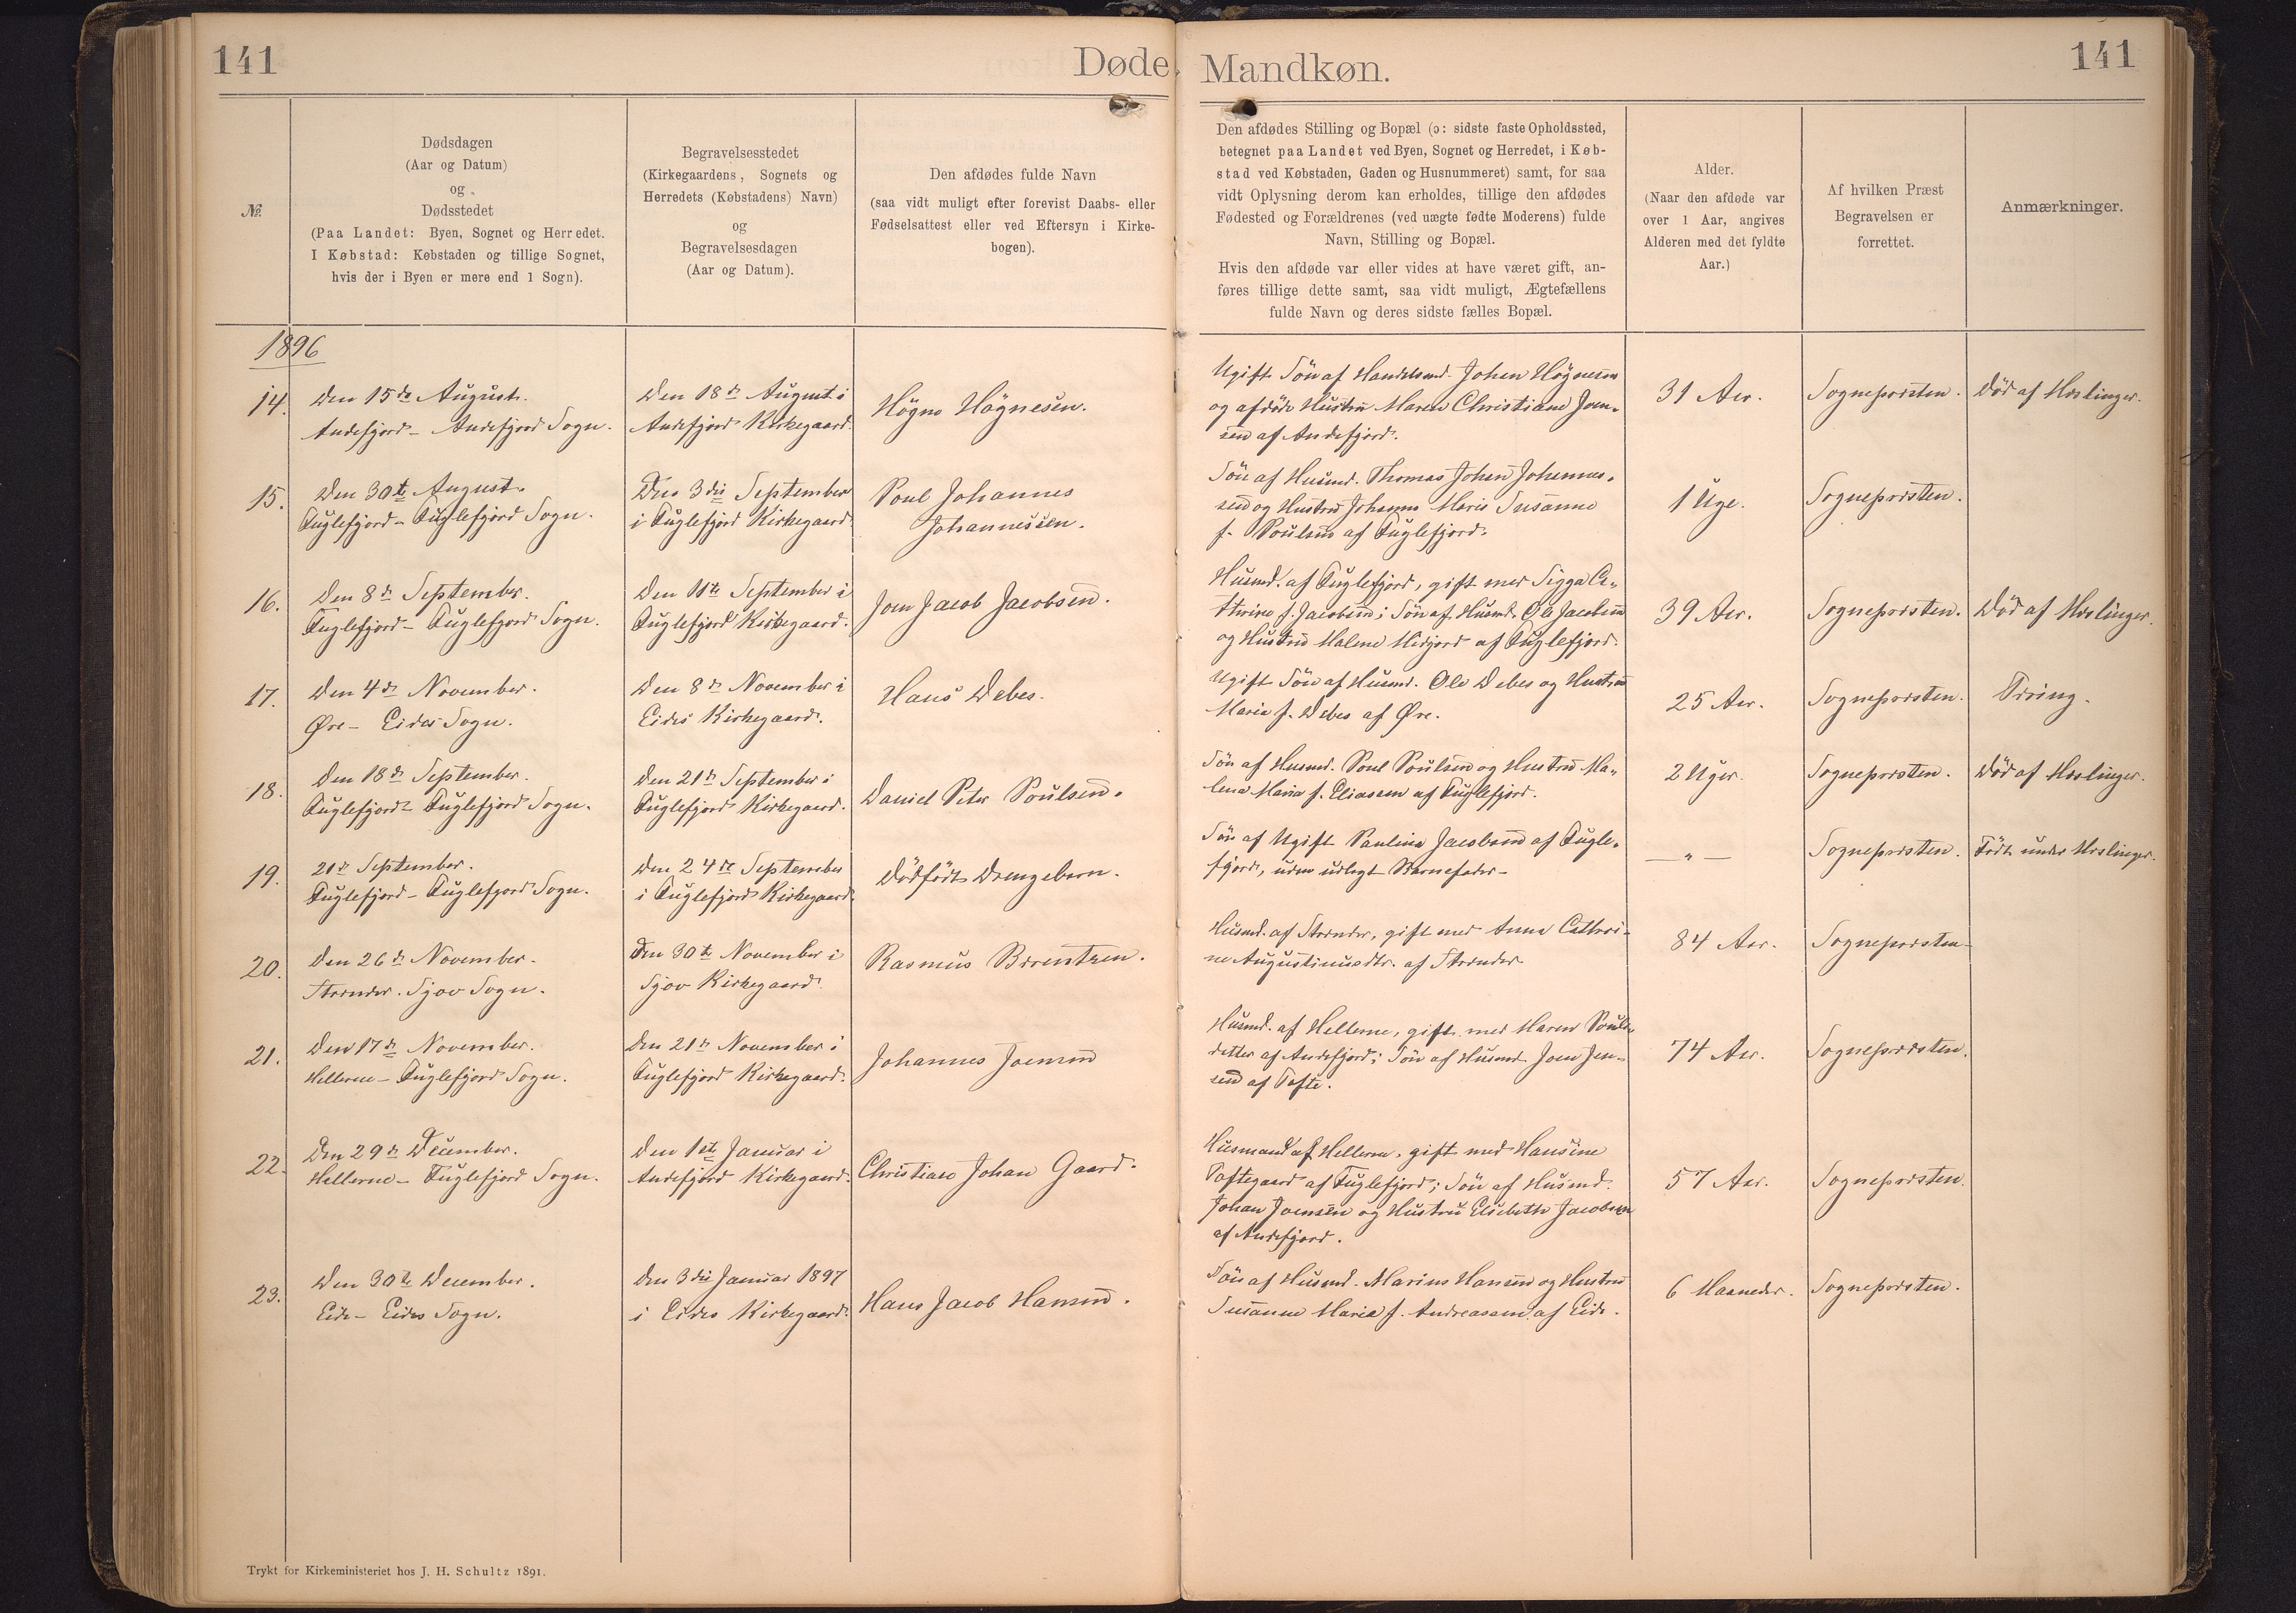 141
Døde,
Mandkøn.
141
№
Dødsdagen
(Aar og Datum)
og
Dødsstedet
(Paa Landet: Byen, Sognet og Herredet.
I Købstad: Købstaden og tillige Sognet,
hvis der i Byen er mere end 1 Sogn).
Begravelsesstedet
(Kirkegaardens, Sognets og
Herredets (Købstadens) Navn)
og
Begravelsesdagen
(Aar og Datum).
Den afdødes fulde Navn
(saa vidt muligt efter forevist Daabs- eller
Fødselsattest eller ved Eftersyn i Kirke-
bogen).
Den afdødes Stilling og Bopæl (ɔ: sidste faste Opholdssted,
betegnet paa Landet ved Byen, Sognet og Herredet, i Køb-
stad ved Købstaden, Gaden og Husnummeret) samt, for saa
vidt Oplysning derom kan erholdes, tillige den afdødes
Fødested og Forældrenes (ved uægte fødte Moderens) fulde
Navn, Stilling og Bopæl.
Hvis den afdøde var eller vides at have været gift, an-
føres tillige dette samt, saa vidt muligt, Ægtefællens
fulde Navn og deres sidste fælles Bopæl.
Alder.
(Naar den afdøde var
over 1 Aar, angives
Alderen med det fyldte
Aar.)
Af hvilken Præst
Begravelsen er
forrettet.
Anmærkninger.
1896
14.
Den 15de August.
Andefjord - Andefjord Sogn.
Den 18de August i
Andefjord Kirkegaard.
Høgne Høgnesen.
Ugift Søn af Handelsmd. Johan Høgnesen
og afdøde Hustru Maren Christiane Joen-
sen af Andefjord.
31 Aar.
Sognepræsten.
Død af Mæslinger.
15.
Den 30te August.
Fuglefjord - Fuglefjord Sogn.
Den 3die September
i Fuglefjord Kirkegaard
Poul Johannes
Johannessen.
Søn af Husmd. Thomas Johan Johannes-
sen og Hustru Johanne Marie Susanne
f. Poulsen af Fuglefjord.
1 Uge.
Sognepræsten.
16.
Den 8de September.
Fuglefjord - Fuglefjord Sogn.
Den 11te September i
Fuglefjord Kirkegaard.
Joen Jacob Jacobsen.
Husmd. af Fuglefjord, gift med Sigga Ca-
thrine f. Jacobsen; Søn af Husmd. Ole Jacobsen
og Hustru Malene Midjord af Fuglefjord.
39 Aar.
Sognepræsten.
Død af Mæslinger.
17.
Den 4de November.
Øre - Eides Sogn.
Den 8de November i
Eides Kirkegaard.
Hans Debes.
Ugift Søn af Husmd. Ole Debes og Hustru
Maria f. Debes af Øre.
25 Aar.
Sognepræsten.
Tæring.
18.
Den 18de September.
Fuglefjord - Fuglefjord Sogn.
Den 21de September i
Fuglefjord Kirkegaard.
Daniel Peter Poulsen.
Søn af Husmd. Poul Poulsen og Hustru Ma-
lena Maria f. Eliasen af Fuglefjord.
2 Uger.
Sognepræsten.
Død af Mæslinger.
19.
21de September.
Fuglefjord - Fuglefjord Sogn.
Den 24de September
i Fuglefjord Kirkegaard.
Dødfødt Drengebarn.
Søn af Ugift Pauline Jacobsen af Fugle-
fjord, uden udlagt Barnefader -
— „ —
Sognepræsten.
Født under Mæslinger.
20.
Den 26de November.
Strender. Sjov Sogn.
Den 30te November i
Sjov Kirkegaard.
Rasmus Berentzen.
Husmd. af Strender, gift med Anna Cathri-
ne Augustinusdtr. af Strender
84 Aar.
Sognepræsten
21.
Den 17de November.
Hellerne - Fuglefjord Sogn.
Den 21de November i
Fuglefjord Kirkegaard.
Johannes Joensen
Husmd. af Hellerne, gift med Maren Pouls-
datter af Andefjord; Søn af Husmd. Joen Jen-
sen af Tofte.
74 Aar.
Sognepræsten.
22.
Den 29de December.
Hellerne - Fuglefjord Sogn.
Den 1ste Januar i
Andefjord Kirkegaard.
Christian Johan Gaard.
Husmand af Hellerne, gift med Hansine
Toftegaard af Fuglefjord; Søn af Husmd.
Johan Joensen og Hustru Elsebeth Jacobsen
af Andefjord.
57 Aar.
Sognepræsten.
23.
Den 30te December.
Eide - Eides Sogn.
Den 3die Januar 1897
i Eides Kirkegaard.
Hans Jacob Hansen.
Søn af Husmd. Marius Hansen og Hustru
Susanne Maria f. Andreasen af Eide.
6 Maaneder.
Sognepræsten.
Trykt for Kirkeministeriet hos J. H. Schultz 1891.